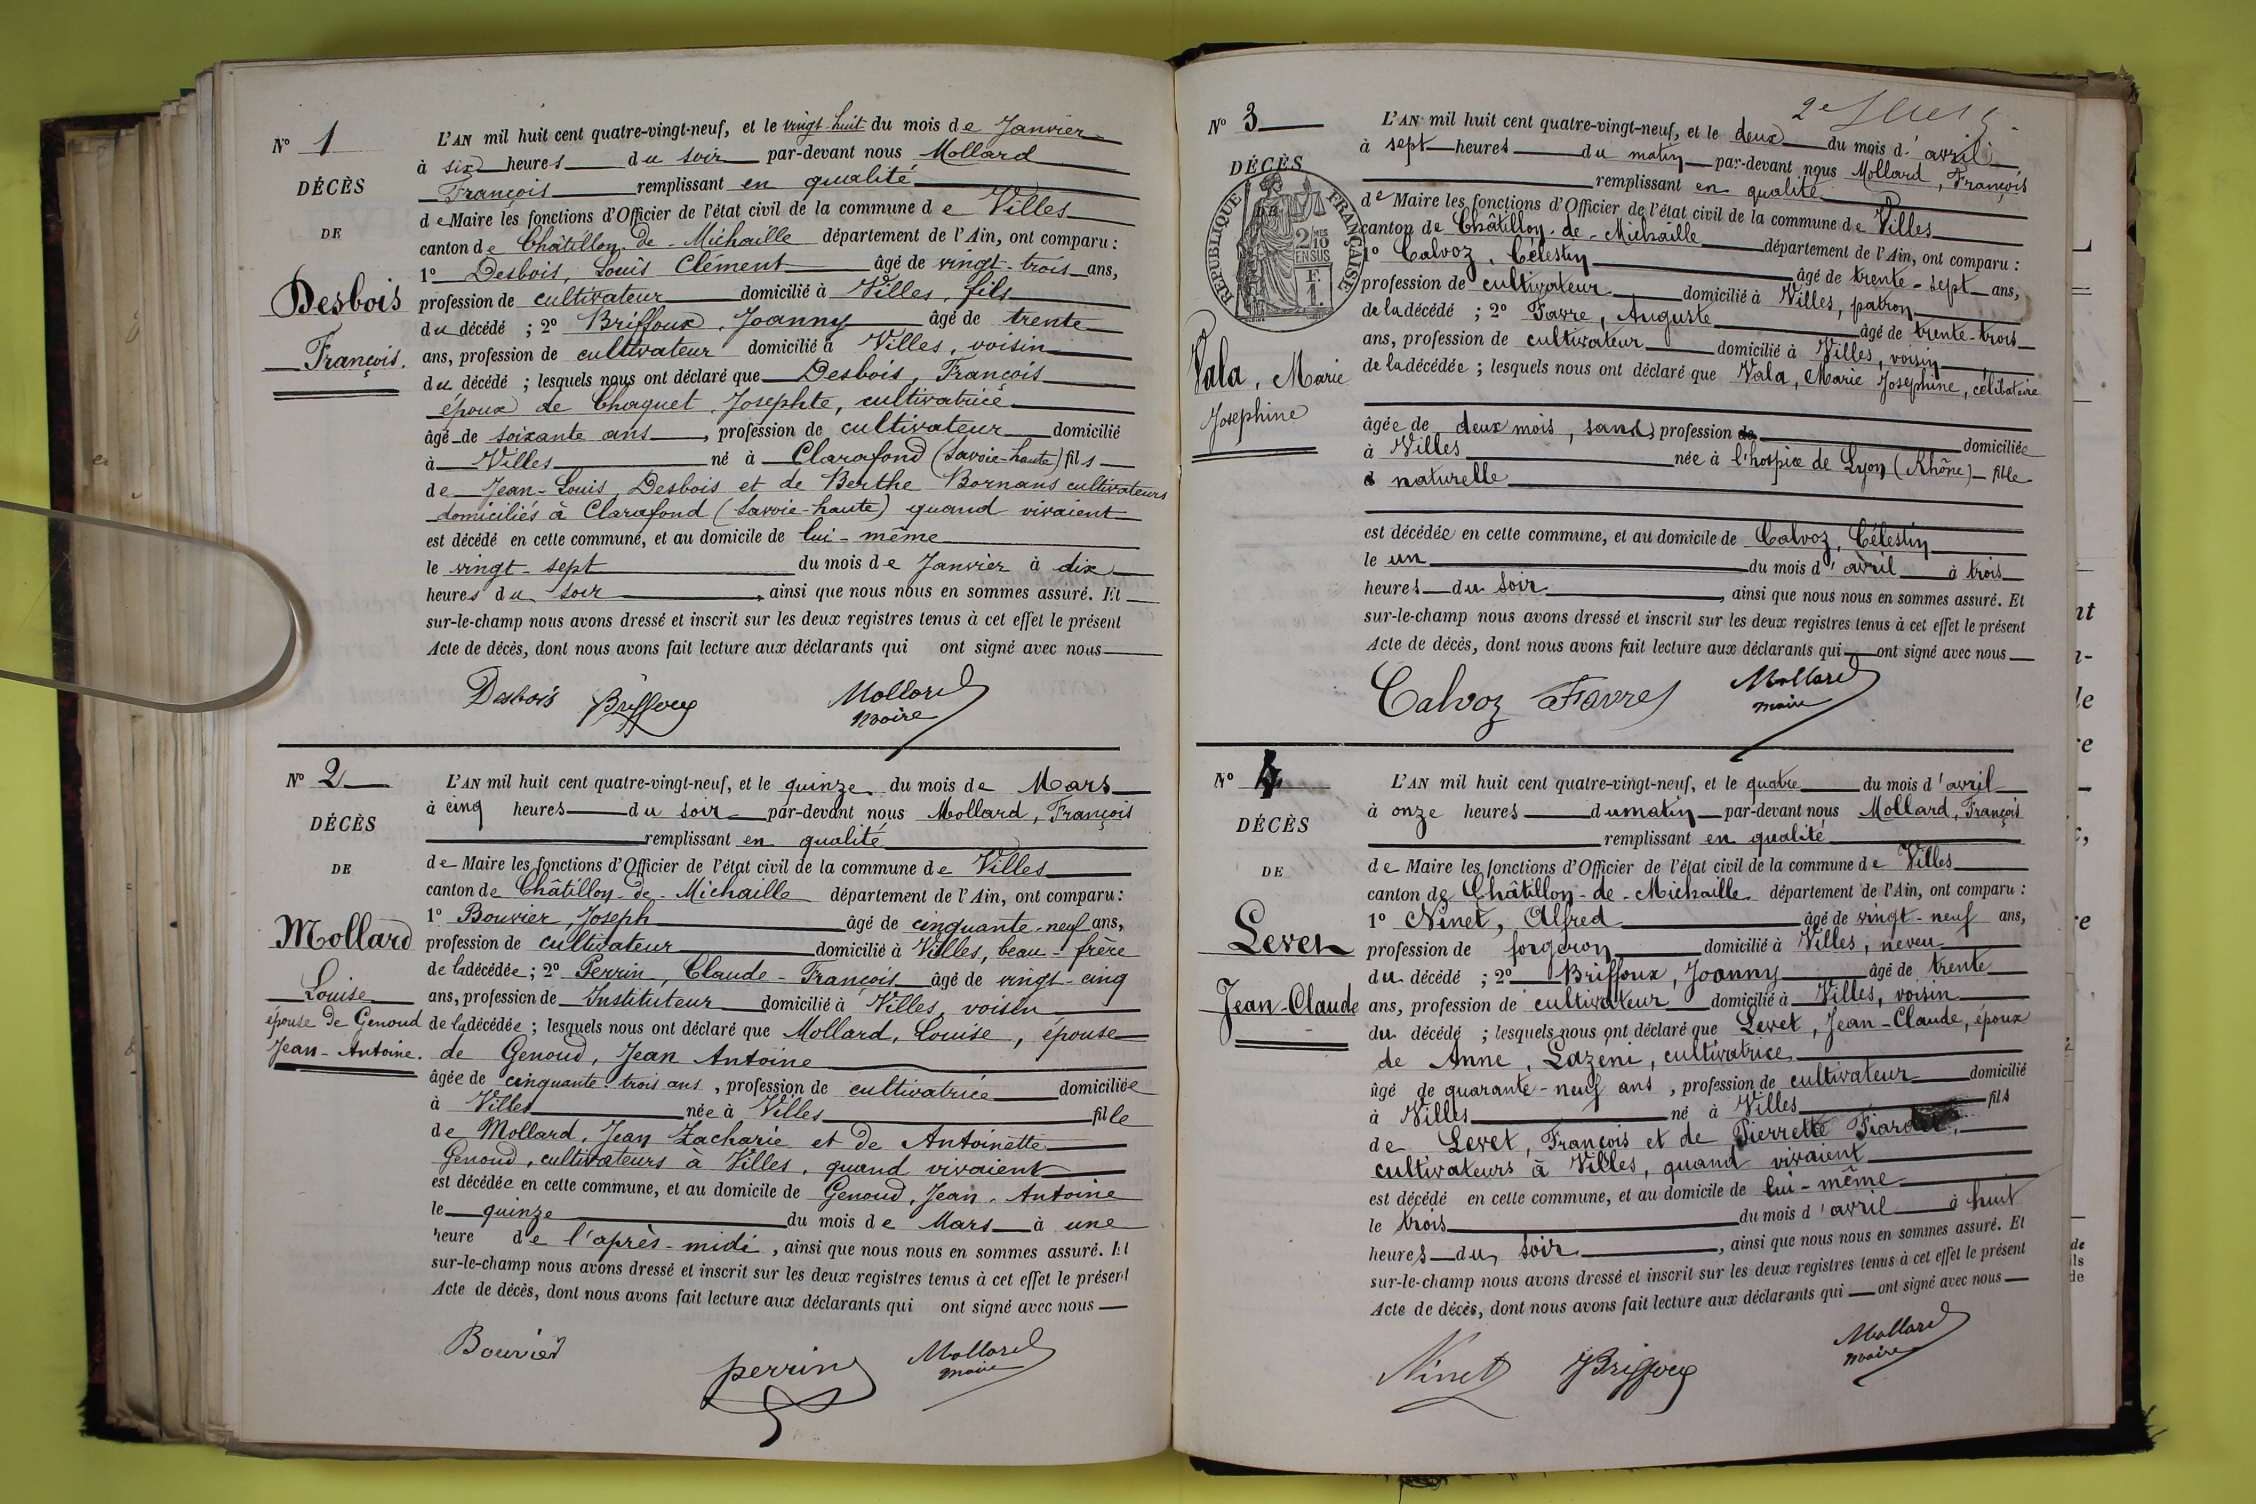 N° 1
DÉCÈS
DE
Desbois
François.
L'AN mil huit cent quatre-vingt-neuf, et le vingt-huit du mois de Janvier
à six heures du soir par-devant nous Mollard
François remplissant en qualité
de Maire les fonctions d'Officier de l'état civil de la commune de Villes
canton de Châtillon-de-Michaille département de l'Ain, ont comparu :
1° Desbois, Louis Clément âgé de vingt-trois ans,
profession de cultivateur domicilié à Villes, fils
du décédé ; 2° Briffoux, Joanny âgé de trente
ans, profession de cultivateur domicilié à Villes, voisin
du décédé ; lesquels nous ont déclaré que Desbois, François
époux de Chaquet, Josephte, cultivatrice
âgé de soixante ans, profession de cultivateur domicilié
à Villes né à Clarafond (Savoie-haute) fils
de Jean-Louis Desbois et de Berthe Bornans cultivateurs
domiciliés à Clarafond (Savoie-haute) quand vivaient
est décédé en cette commune, et au domicile de lui-même
le vingt-sept du mois de Janvier à dix
heures du soir, ainsi que nous nous en sommes assuré. Et
sur-le-champ nous avons dressé et inscrit sur les deux registres tenus à cet effet le présent
Acte de décès, dont nous avons fait lecture aux déclarants qui ont signé avec nous
Desbois Briffoux Mollard
maire
N° 2
DÉCÈS
DE
Mollard
Louise
épouse de Genoud
Jean-Antoine.
L'AN mil huit cent quatre-vingt-neuf, et le quinze du mois de Mars
à cinq heures du soir par-devant nous Mollard, François
remplissant en qualité
de Maire les fonctions d'Officier de l'état civil de la commune de Villes
canton de Châtillon-de-Michaille département de l'Ain, ont comparu :
1° Bouvier, Joseph âgé de cinquante-neuf ans,
profession de cultivateur domicilié à Villes, beau-frère
de la décédée ; 2° Perrin, Claude-François âgé de vingt-cinq
ans, profession de Instituteur domicilié à Villes, voisin
de la décédée ; lesquels nous ont déclaré que Mollard, Louise, épouse
de Genoud, Jean Antoine
âgée de cinquante-trois ans, profession de cultivatrice domiciliée
à Villes née à Villes fille
de Mollard, Jean Zacharie et de Antoinette
Genoud, cultivateurs à Villes, quand vivaient
est décédée en cette commune, et au domicile de Genoud, Jean-Antoine
le quinze du mois de Mars à une
heure de l'après-midi, ainsi que nous nous en sommes assuré. Et
sur-le-champ nous avons dressé et inscrit sur les deux registres tenus à cet effet le présent
Acte de décès, dont nous avons fait lecture aux déclarants qui ont signé avec nous
Bouvier Perrin Mollard
maire
N° 3
DÉCÈS
RÉPUBLIQUE FRANÇAISE
2/10 MES
EN SUS
F.
1.
Vala, Marie
Josephine
L'AN mil huit cent quatre-vingt-neuf, et le deux du mois d'avril
à sept heures du matin par-devant nous Mollard, François
remplissant en qualité
de Maire les fonctions d'Officier de l'état civil de la commune de Villes
canton de Châtillon-de-Michaille département de l'Ain, ont comparu :
1° Calvoz, Célestin âgé de trente-sept ans,
profession de cultivateur domicilié à Villes, patron
de la décédé ; 2° Favre, Auguste âgé de trente-trois
ans, profession de cultivateur domicilié à Villes, voisin
de la décédée ; lesquels nous ont déclaré que Vala, Marie Josephine, célibataire
âgée de deux mois, sans profession de domiciliée
à Villes née à l'hospice de Lyon (Rhône) fille
naturelle
est décédée en cette commune, et au domicile de Calvoz, Célestin
le un du mois d'avril à trois
heures du soir, ainsi que nous nous en sommes assuré. Et
sur-le-champ nous avons dressé et inscrit sur les deux registres tenus à cet effet le présent
Acte de décès, dont nous avons fait lecture aux déclarants qui ont signé avec nous
Calvoz Favre Mollard
maire
N° 4
DÉCÈS
DE
Levet
Jean-Claude
L'AN mil huit cent quatre-vingt-neuf, et le quatre du mois d'avril
à onze heures du matin par-devant nous Mollard, François
remplissant en qualité
de Maire les fonctions d'Officier de l'état civil de la commune de Villes
canton de Châtillon-de-Michaille département de l'Ain, ont comparu :
1° Ninet, Alfred âgé de vingt-neuf ans,
profession de forgeron domicilié à Villes, neveu
du décédé ; 2° Briffoux, Joanny âgé de trente
ans, profession de cultivateur domicilié à Villes, voisin
du décédé ; lesquels nous ont déclaré que Levet, Jean-Claude, époux
de Anne, Lazeni, cultivatrice
âgé de quarante-neuf ans, profession de cultivateur domicilié
à Villes né à Villes fils
de Levet, François et de Pierrette
cultivateurs à Villes, quand vivaient
est décédé en cette commune, et au domicile de lui-même
le trois du mois d'avril à huit
heures du soir, ainsi que nous nous en sommes assuré. Et
sur-le-champ nous avons dressé et inscrit sur les deux registres tenus à cet effet le présent
Acte de décès, dont nous avons fait lecture aux déclarants qui ont signé avec nous
Ninet Briffoux Mollard
maire